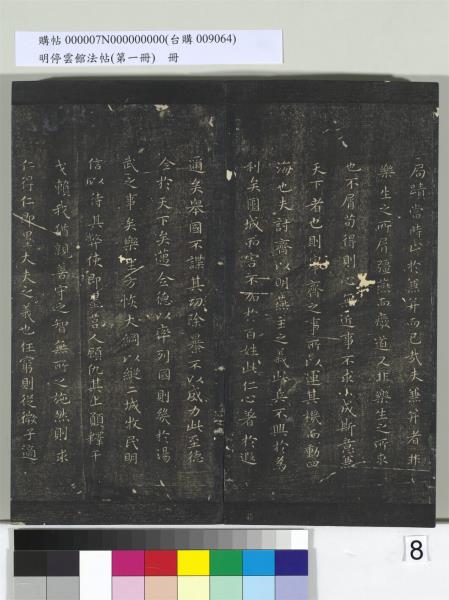 購帖 000007N000000000(台購 009064)
明停雲館法帖(第一冊) 冊
局蹟當時止於兼并而已哉夫兼并者非
樂生之所屑彊燕而廢道又非樂生之所求
也不屑苟得則心無近事不求小成斯意兼
天下者也則舉齊之事所以運其機而動四
海也夫討齊以明燕主之義此兵不興於為
利矣圍城而害不加於百姓此仁心著於遐
邇矣舉國不謀其功除暴不以威力此至德
全於天下矣邁全德以率列國則幾於湯
武之事矣樂生方恢大綱以縱二城牧民明
信以待其弊使即墨莒人顧仇其上願釋干
戈賴我猶親善守之智無所之施然則求
仁得仁即墨大夫之義也任窮則從微子適
8